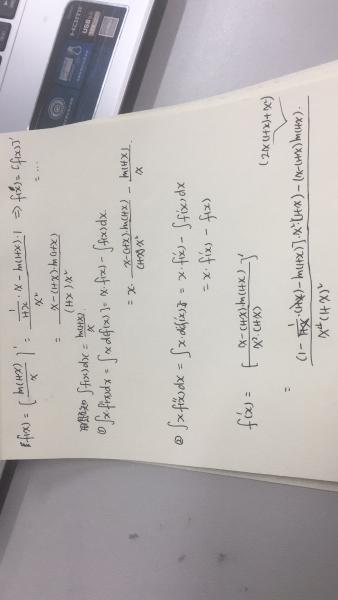 f(x) = [ln(1+x)/x]' = (1/(1+x)·x - ln(1+x)·1)/x² ⇒ f'(x) = [f(x)]'
= (x-(1+x)·ln(1+x))/((1+x)x²) = ...
∫f(x)dx = ln(1+x)/x
① ∫x·f'(x)dx = ∫x d[f(x)] = x·f(x) - ∫f(x)dx
= x·(x-(1+x)·ln(1+x))/((1+x)·x²) - ln(1+x)/x
② ∫x f''(x)dx = ∫x·d[f'(x)] = x·f'(x) - ∫f'(x)dx
= x·f'(x) - f(x)
f'(x) = [(x-(1+x)·ln(1+x))/(x²·(1+x))]'
(2x(1+x)+x²)
= ((1-1/(1+x)·(1+x)-ln(1+x)]·x²·(1+x) - (x-(1+x)ln(1+x))·)/(x⁴(1+x)²)
HDMI
USB